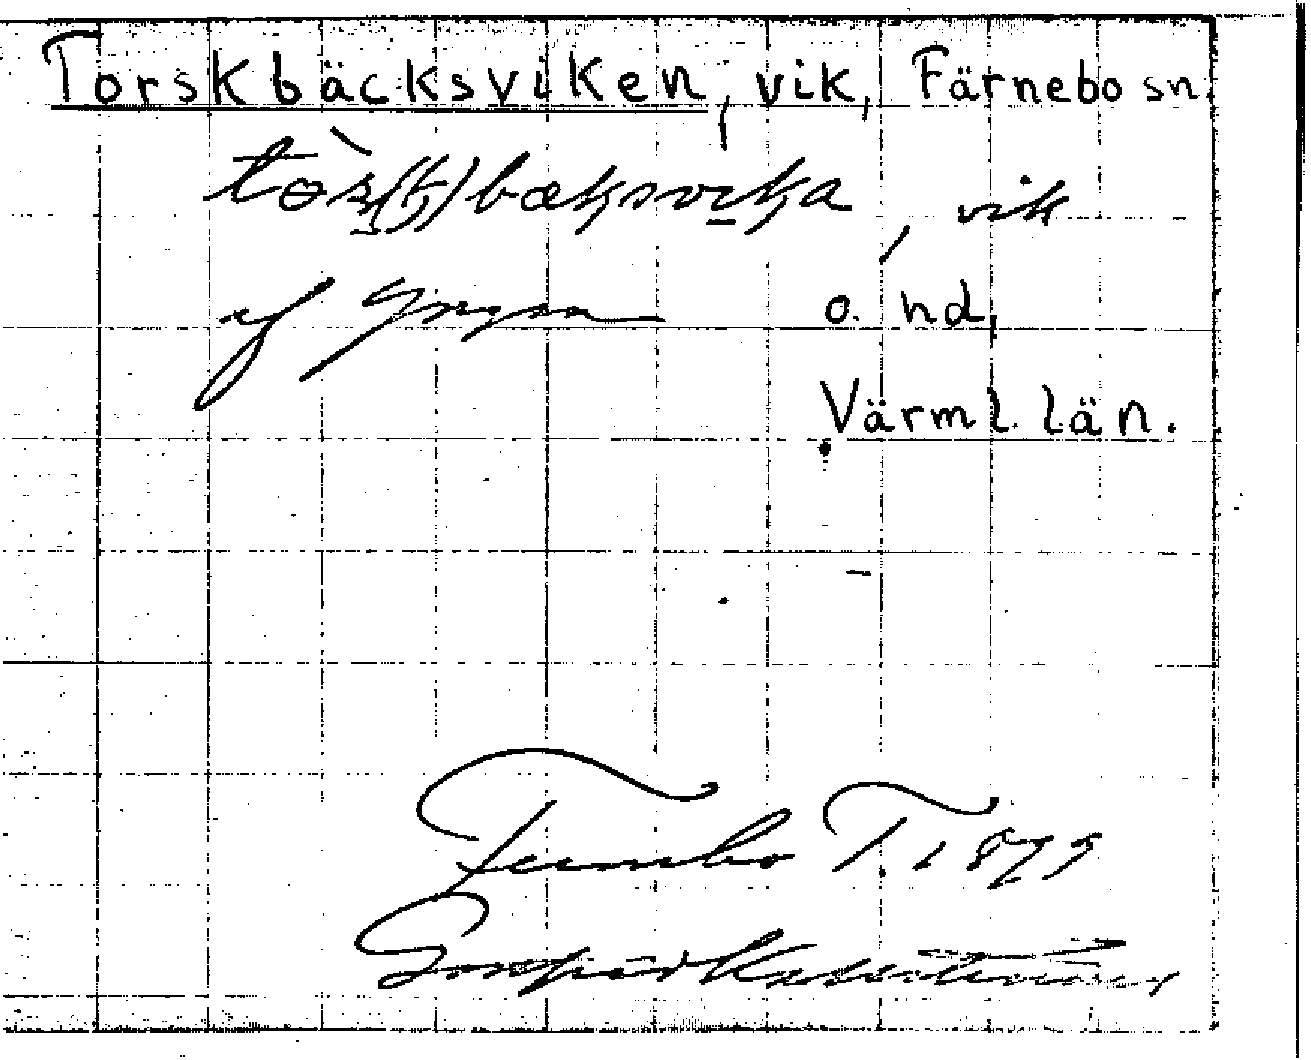 Torskbäcksviken, vik, Färnebo sn.
tòs(k)bæksvika, vik
af Yngen o. hd,
Värml. län.
Fernebo T. 1879